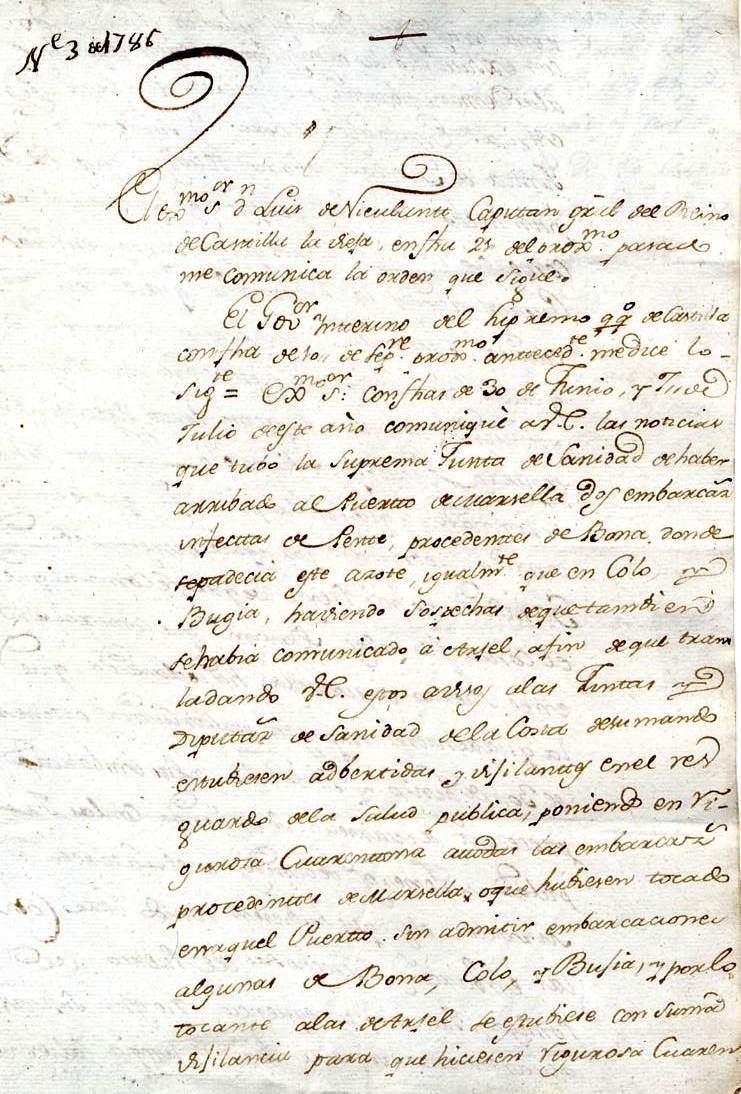 Nº 3 de 1786
Exmo Sor Dn Luis de Nieulante Capitan gral del Reino
de Castilla la vieja, en fha 25 del proxmo pasado
me comunica la orden que sigue.
El Govor Ynterino del Supremo de Castilla
con fha de 10 de Sepre proxmo anttecedte me dice lo
sigte = Exmo Sor: con fhas de 30 de Junio, y de
Julio de este año comuniquè a V.E. las noticias
que tubó la Suprema Junta de Sanidad de haber
arribado al Puertto de Marsella dos embarcazs
infecttas de Peste, procedenttes de Bona, donde
se padecia este azote, igualmte que en Colo, y
Bugia, haviendo sospechas de que tambien
se habia comunicado á Argel, a fin de que tras
ladando V.E. estos avisos a las Juntas y
Diputazs de Sanidad de la Costa de su mando
estubiesen adbertidas y vigilantes en el res
guardo de la salud publica, poniendo en ri-
gurosa Cuarentena a todas las embarcazs
procedenttes de Marsella, o que hubiesen tocado
en aquel Puertto sin admitir embarcaciones
algunas de Bona, Colo, y Busia, y por lo
tocante a las de Argel se estubiese con suma
vigilancia para que hiciesen rigurosa Cuaren